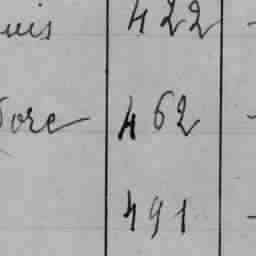 uis 422 -
dore 462 -
491 -